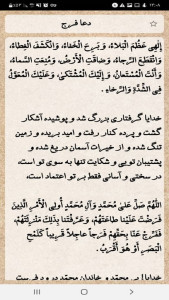 ۱۲:۰۸
دعا فرج
إِلٰهِي عَظُمَ الْبَلَاءُ، وَ بَرِحَ الْخَفَاءُ، وَانْكَشَفَ الْغِطَاءُ،
وَانْقَطَعَ الرَّجَاءُ، وَضَاقَتِ الْأَرْضُ، وَمُنِعَتِ السَّمَاءُ،
وَأَنْتَ الْمُسْتَعَانُ، وَ إِلَيْكَ الْمُشْتَكىٰ، وَعَلَيْكَ الْمُعَوَّلُ
فِي الشِّدَّةِ وَالرَّخَاءِ.
خدایا گرفتاری بزرگ شد و پوشیده آشکار
گشت و پرده کنار رفت و امید بریده و زمین
تنگ شده و از خیرات آسمان دریغ شده و
پشتیبان تویی و شکایت تنها به سوی تو است،
در سختی و آسانی فقط بر تو اعتماد است،
اللّٰهُمَّ صَلِّ عَلىٰ مُحَمَّدٍ وَآلِ مُحَمَّدٍ أُولِي الْأَمْرِ الَّذِينَ
فَرَضْتَ عَلَيْنَا طَاعَتَهُمْ، وَعَرَّفْتَنَا بِذٰلِكَ مَنْزِلَتَهُمْ،
فَفَرِّجْ عَنَّا بِحَقِّهِمْ فَرَجاً عَاجِلاً قَرِيباً كَلَمْحِ
الْبَصَرِ أَوْ هُوَ أَقْرَبُ.
خدایا! بر محمد و خاندان محمد درود فرست